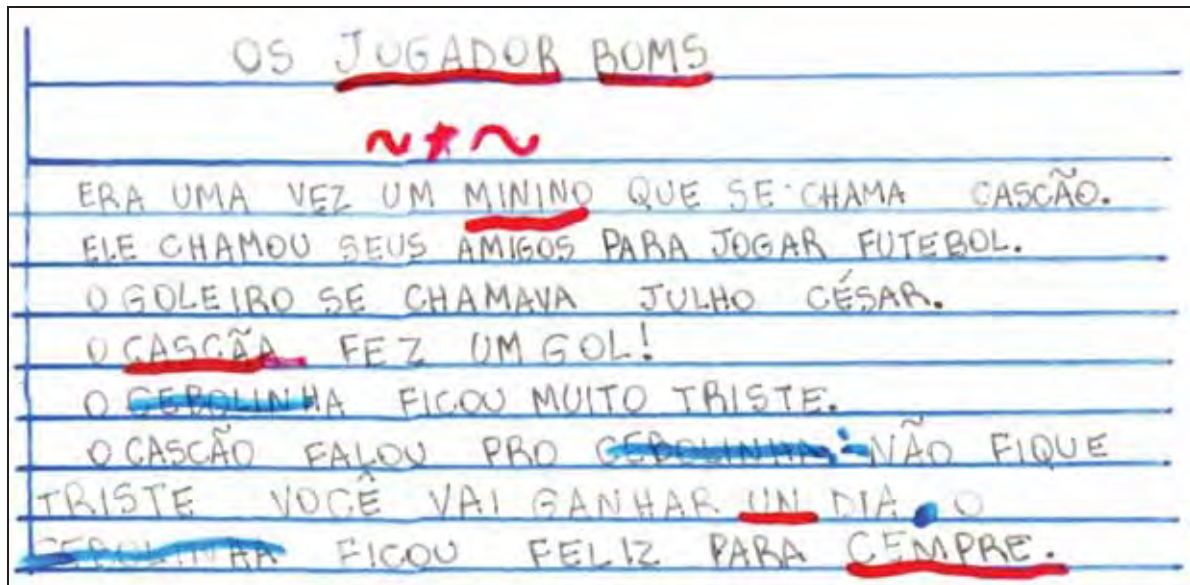 OS JUGADOR BOMS
ERA UMA VEZ UM MININO QUE SE CHAMA CASCÃO.
ELE CHAMOU SEUS AMIGOS PARA JOGAR FUTEBOL.
O GOLEIRO SE CHAMAVA JULHO CÉSAR.
O CASCÃA FEZ UM GOL!
O CEBOLINHA FICOU MUITO TRISTE.
O CASCÃO FALOU PRO CEBOLINHA: NÃO FIQUE
TRISTE VOCÊ VAI GANHAR UN DIA. O
CEBOLINHA FICOU FELIZ PARA CEMPRE.